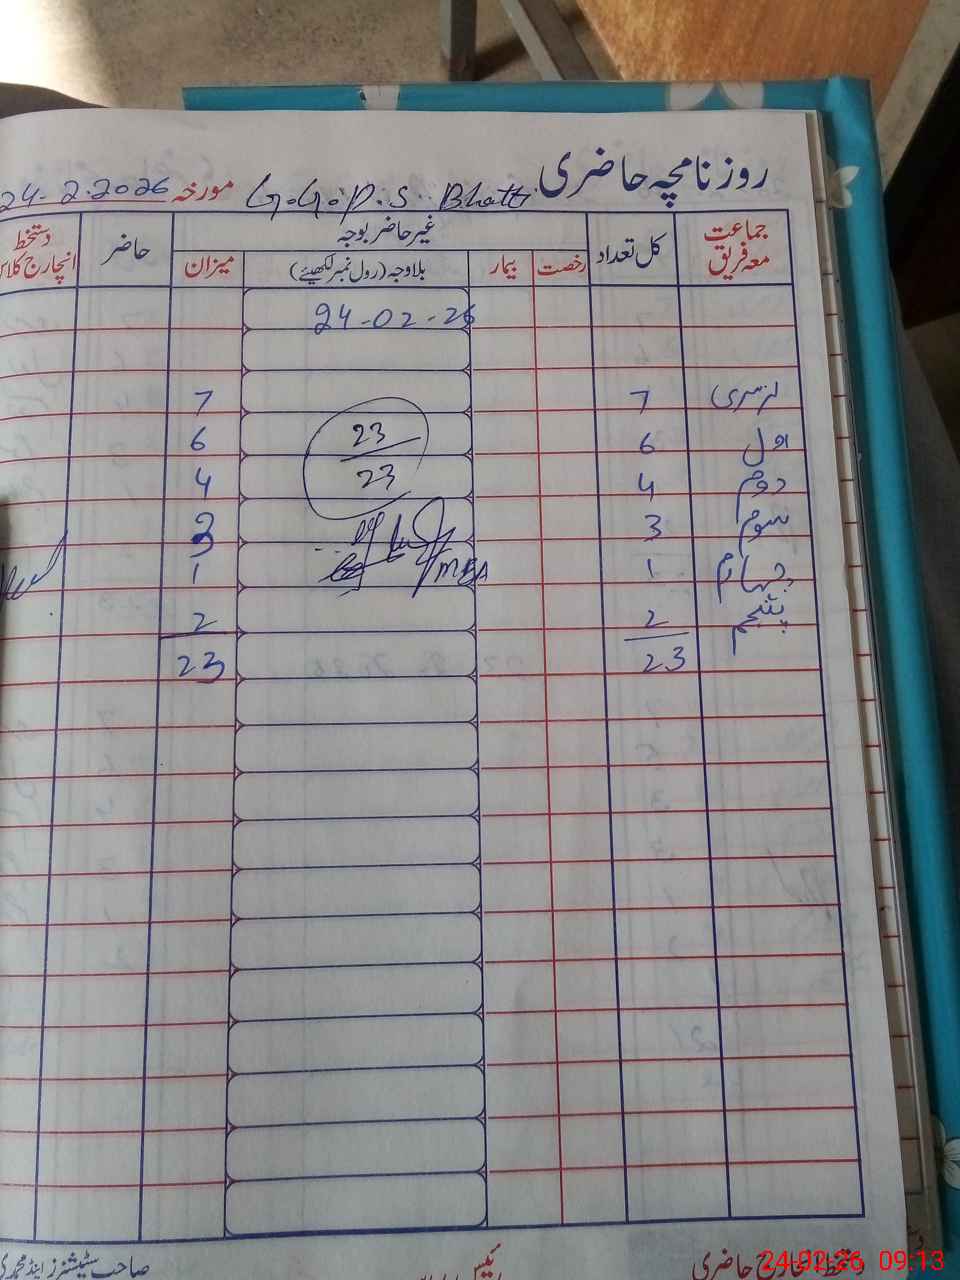 روزنامچہ حاضری G.G.P.S. Bhatti مورخہ 24-2-2026
جماعت معہ فریق کل تعداد غیر حاضر بوجہ حاضر دستخط انچارج کلاس
رخصت بیمار بلاوجہ (رول نمبر لکھیئے) میزان
24-02-26
نرسری 7 7
اول 6 23 6
دوم 4 23 4
سوم 3 3
چہارم 1 MEA 1
پنجم 2 2
23 23
دستخط انچارج حاضری صاحب سٹیشنرز اینڈ
24-02-26 09:13